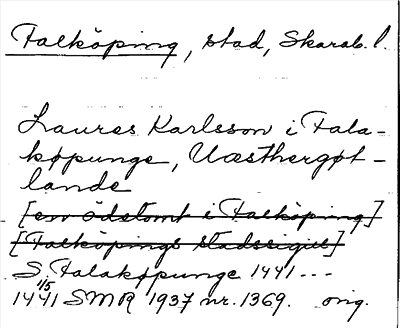 Falköping, stad, Skarab. l.
Laures Karlsson i Fala-
køpunge, Væsthergøt-
lande
[en ödstomt i Falköping]
[Falköpings stadssigill]
S. Falakøpunge 1441 ---
1/5
1441 SMR 1937 nr. 1369. orig.